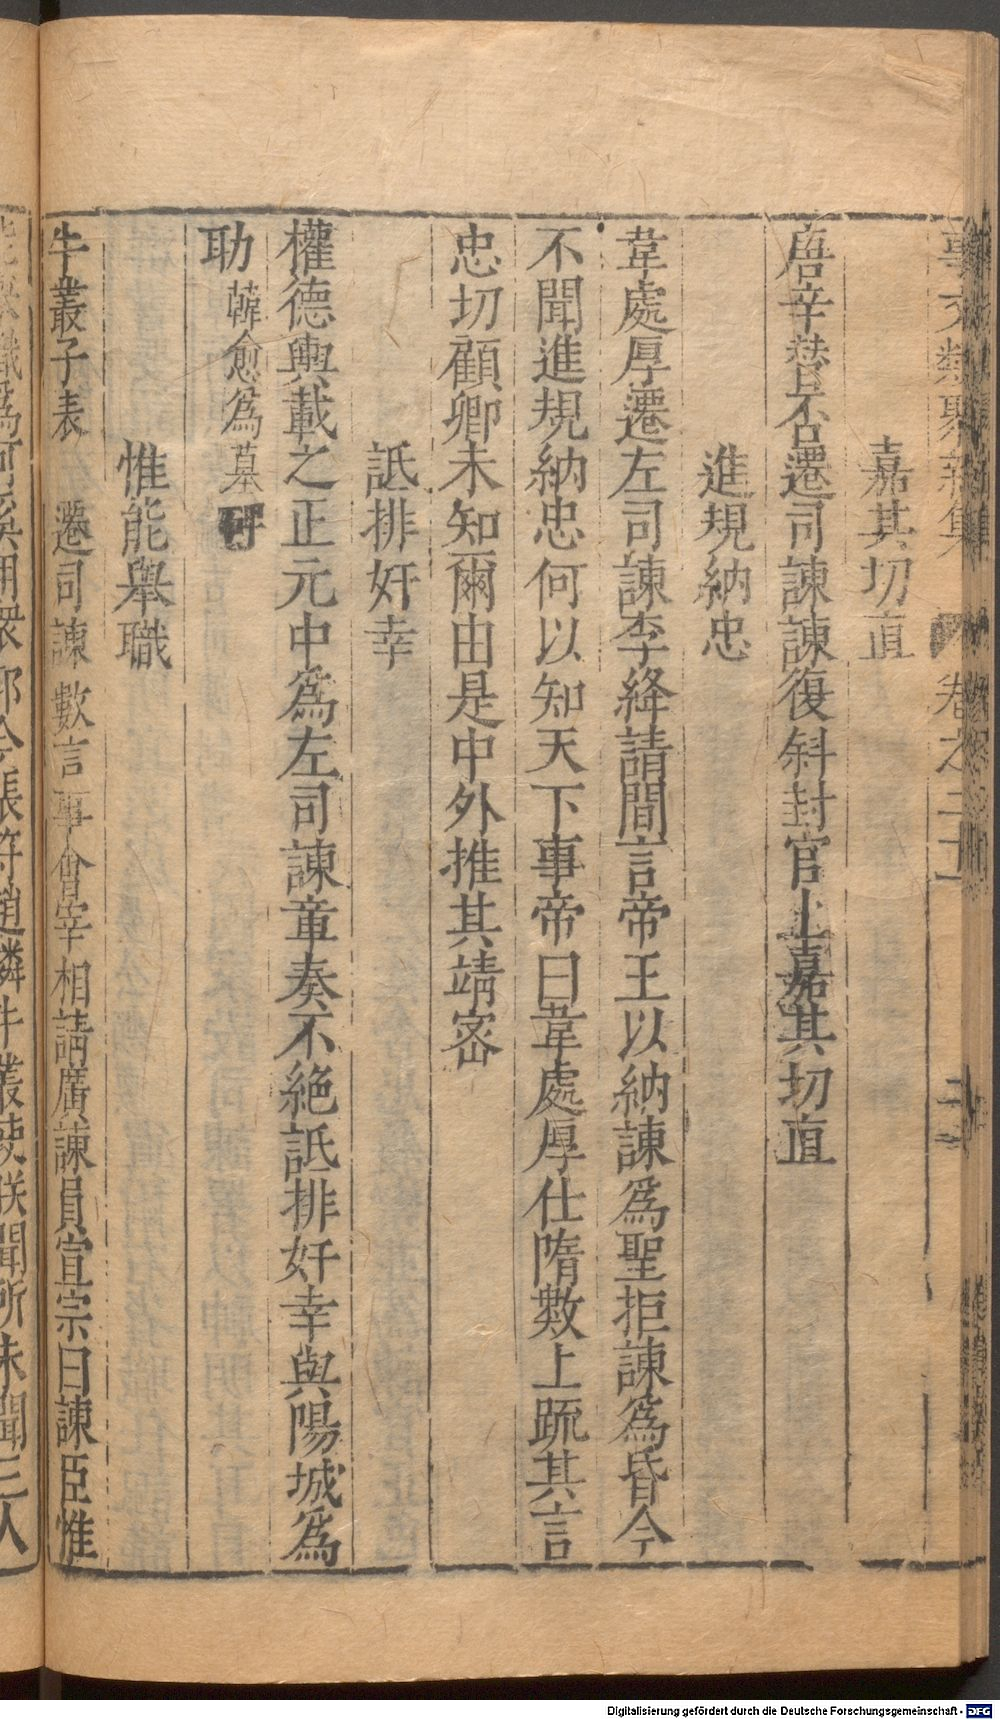 嘉其切直
唐辛替否遷司諫諫復斜封官上嘉其切直
進規納忠
韋處厚遷左司諫李絳請間言帝王以納諫爲聖拒諫爲昏今
不聞進規納忠何以知天下事帝曰韋處厚仕隋數上疏其言
忠切顧卿未知爾由是中外推其靖密
詆排奸幸
權德輿載之正元中爲左司諫章奏不絶詆排奸幸與陽城爲
助 韓愈爲墓碑
惟能舉職
牛叢子表 遷司諫 數言事會宰相請廣諫員宣宗曰諫臣惟
能舉職爲可奚用衆耶今張符趙璘牛叢使朕聞所未聞三人
Digitalisierung gefördert durch die Deutsche Forschungsgemeinschaft - DFG